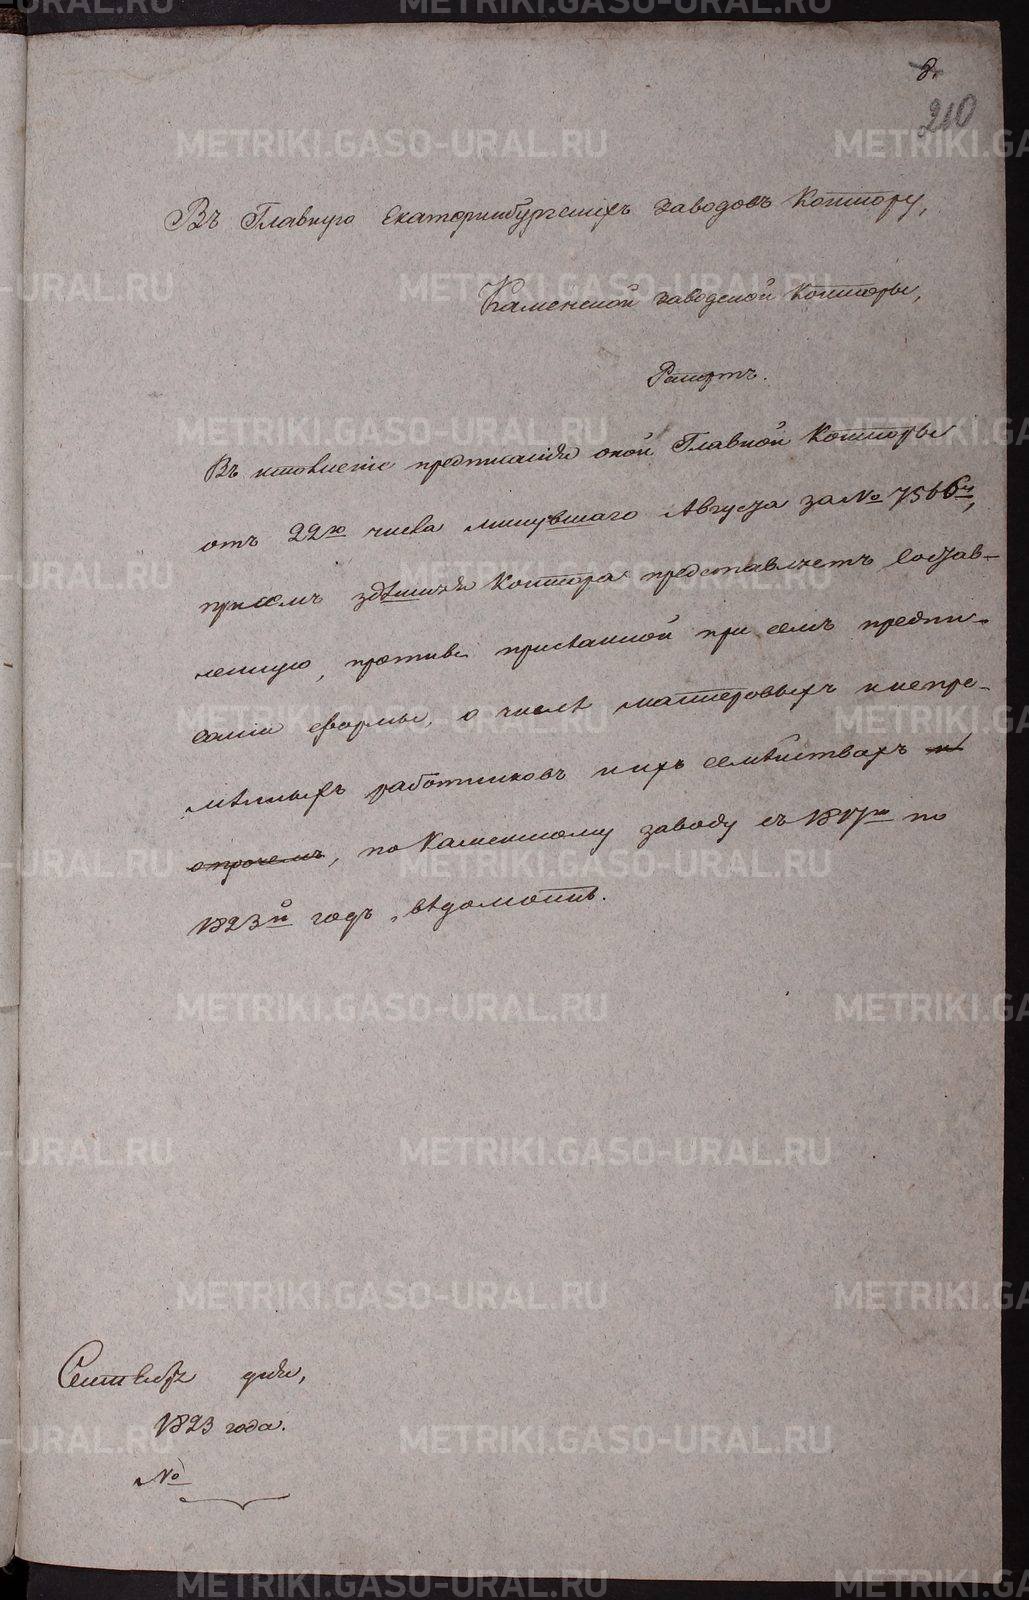 8.
210
Въ Главную Екатеринбургскихъ заводовъ Контору,
Каменской заводской Конторы,
Рапортъ.
Въ исполненіе предписанія оной Главной Конторы
отъ 22го числа минувшаго Августа за № 7566м,
присемъ здѣшняя Контора представляетъ состав-
ленную, противъ присланной при семъ предпи-
саніи формы, о числѣ мастеровыхъ и непре-
мѣнныхъ работниковъ и ихъ семѣйствахъ и
опрочемъ, по Каменскому заводу съ 1817го по
1823й годъ, вѣдомость.
Сентября дня,
1823 года.
№
METRIKI.GASO-URAL.RU